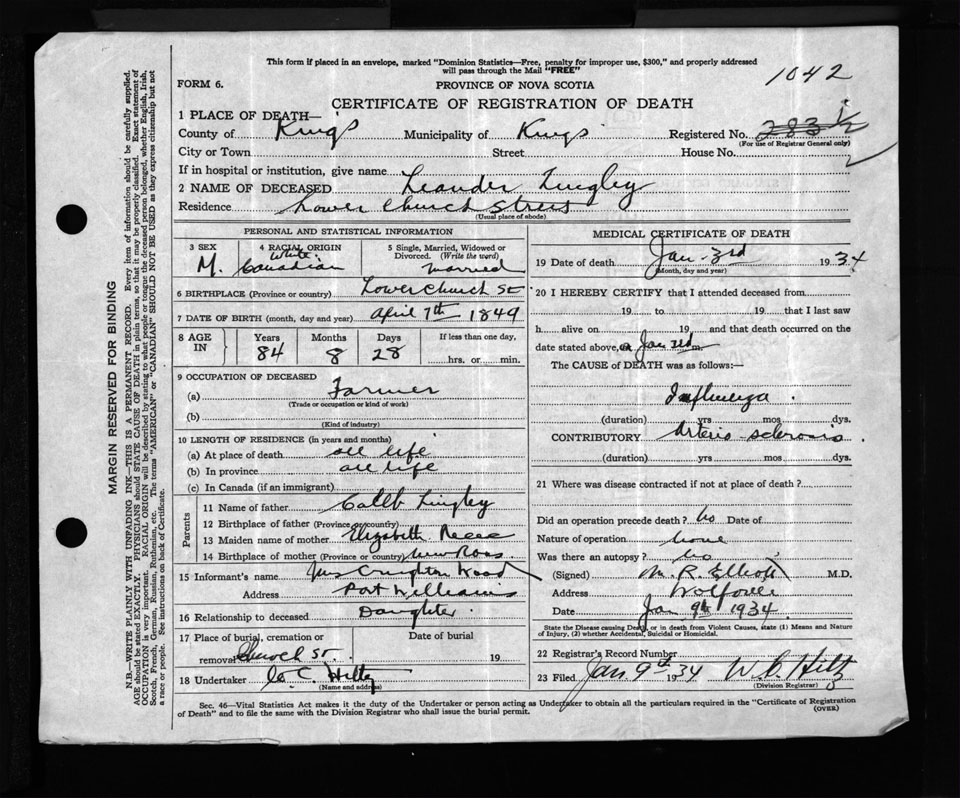 This form if placed in an envelope, marked "Dominion Statistics—Free, penalty for improper use, $300," and properly addressed
will pass through the Mail "FREE"
1042
FORM 6.
PROVINCE OF NOVA SCOTIA
CERTIFICATE OF REGISTRATION OF DEATH
1 PLACE OF DEATH—
County of King's Municipality of Kings Registered No. 283½
(For use of Registrar General only)
City or Town Street House No.
If in hospital or institution, give name
2 NAME OF DECEASED Leander Lingley
Residence Lower Church Street
(Usual place of abode)
PERSONAL AND STATISTICAL INFORMATION
3 SEX 4 RACIAL ORIGIN 5 Single, Married, Widowed or
Divorced. (Write the word)
White
M. Canadian Married
6 BIRTHPLACE (Province or country) Lower Church St
7 DATE OF BIRTH (month, day and year) April 7th 1849
8 AGE IN Years Months Days If less than one day,
84 8 28 hrs. or min.
9 OCCUPATION OF DECEASED
(a) Farmer
(Trade or occupation or kind of work)
(b)
(Kind of industry)
10 LENGTH OF RESIDENCE (in years and months)
(a) At place of death all life
(b) In province all life
(c) In Canada (if an immigrant)
Parents
11 Name of father Caleb Lingley
12 Birthplace of father (Province or country)
13 Maiden name of mother Elizabeth Reece
14 Birthplace of mother (Province or country) New Ross
15 Informant's name Mrs Creighton Wood
Address Port Williams
16 Relationship to deceased Daughter
17 Place of burial, cremation or Date of burial
removal Church St 19
18 Undertaker W. C. Hiltz
(Name and address)
MEDICAL CERTIFICATE OF DEATH
19 Date of death Jan 3rd 1934
(Month, day and year)
20 I HEREBY CERTIFY that I attended deceased from
19 to 19 that I last saw
h alive on 19 and that death occurred on
date stated above, Jan 3rd m.
The CAUSE of DEATH was as follows:—
Influenza
(duration) yrs mos dys.
CONTRIBUTORY Arterio-sclerosis
(duration) yrs mos dys.
21 Where was disease contracted if not at place of death?
Did an operation precede death? No Date of
Nature of operation None
Was there an autopsy? No
(Signed) M. R. Elliott M.D.
Address Wolfville
Date Jan 9th 1934
State the Disease causing Death, or in death from Violent Causes, state (1) Means and Nature
of Injury, (2) whether Accidental, Suicidal or Homicidal.
22 Registrar's Record Number
23 Filed Jan 9th 1934 W. C. Hiltz
(Division Registrar)
Sec. 46—Vital Statistics Act makes it the duty of the Undertaker or person acting as Undertaker to obtain all the particulars required in the "Certificate of Registration
of Death" and to file the same with the Division Registrar who shall issue the burial permit.
(OVER)
MARGIN RESERVED FOR BINDING
N.B.—WRITE PLAINLY WITH UNFADING INK—THIS IS A PERMANENT RECORD. Every item of information should be carefully supplied.
AGE should be stated EXACTLY. PHYSICIANS should STATE CAUSE OF DEATH in plain terms, so that it may be properly classified. Exact statement of
OCCUPATION is very important. RACIAL ORIGIN will be described by stating to what people or tongue the deceased person belonged, whether English, Irish,
Scotch, French, German, Russian, Ruthenian, etc. The terms "AMERICAN" or "CANADIAN" SHOULD NOT BE USED as they express citizenship but not
a race or people. See instructions on back of Certificate.